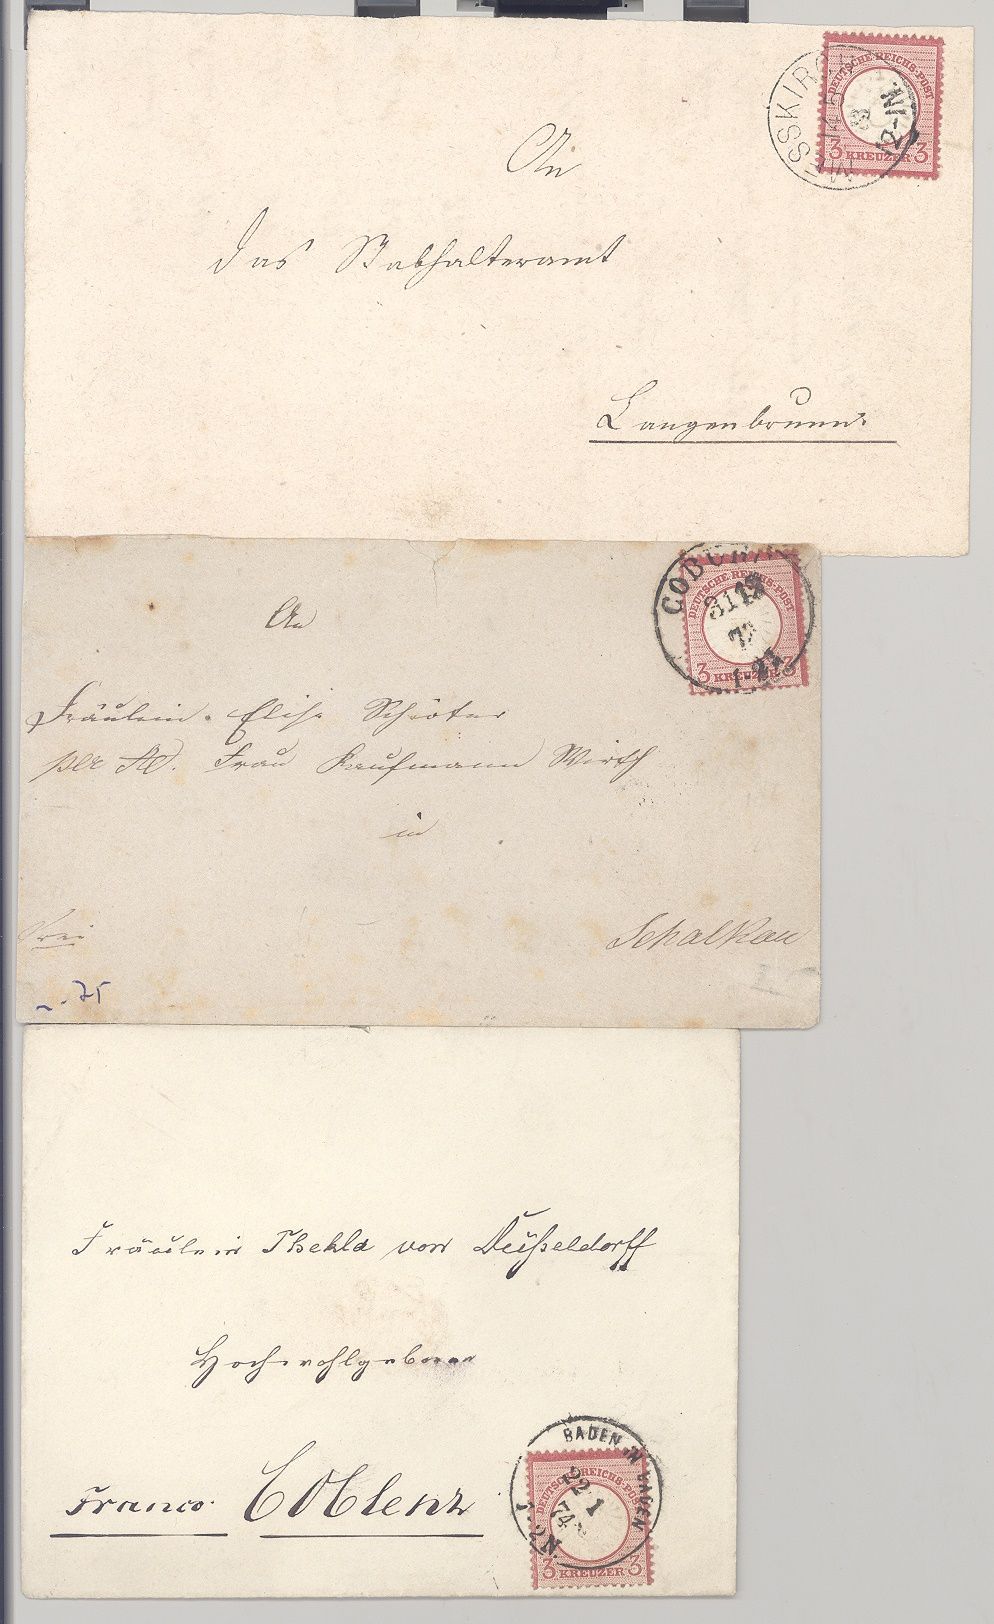 An
das Stabhalteramt
Langenbrunn
MESSKIRCH
14 8
12-1N.
DEUTSCHE REICHS-POST
3 KREUZER 3
An
Fräulein Elise Schröter
per Ad. Frau Kaufmann Wirth
in
frei
Schalkau
75
COBURG
31 12
DEUTSCHE REICHS-POST
3 KREUZER 3
Fräulein Thekla von Düsseldorff
Hochwohlgeboren
Franco. Coblenz
BADEN IN BADEN
22 1
74
1-2 N.
DEUTSCHE REICHS-POST
3 KREUZER 3